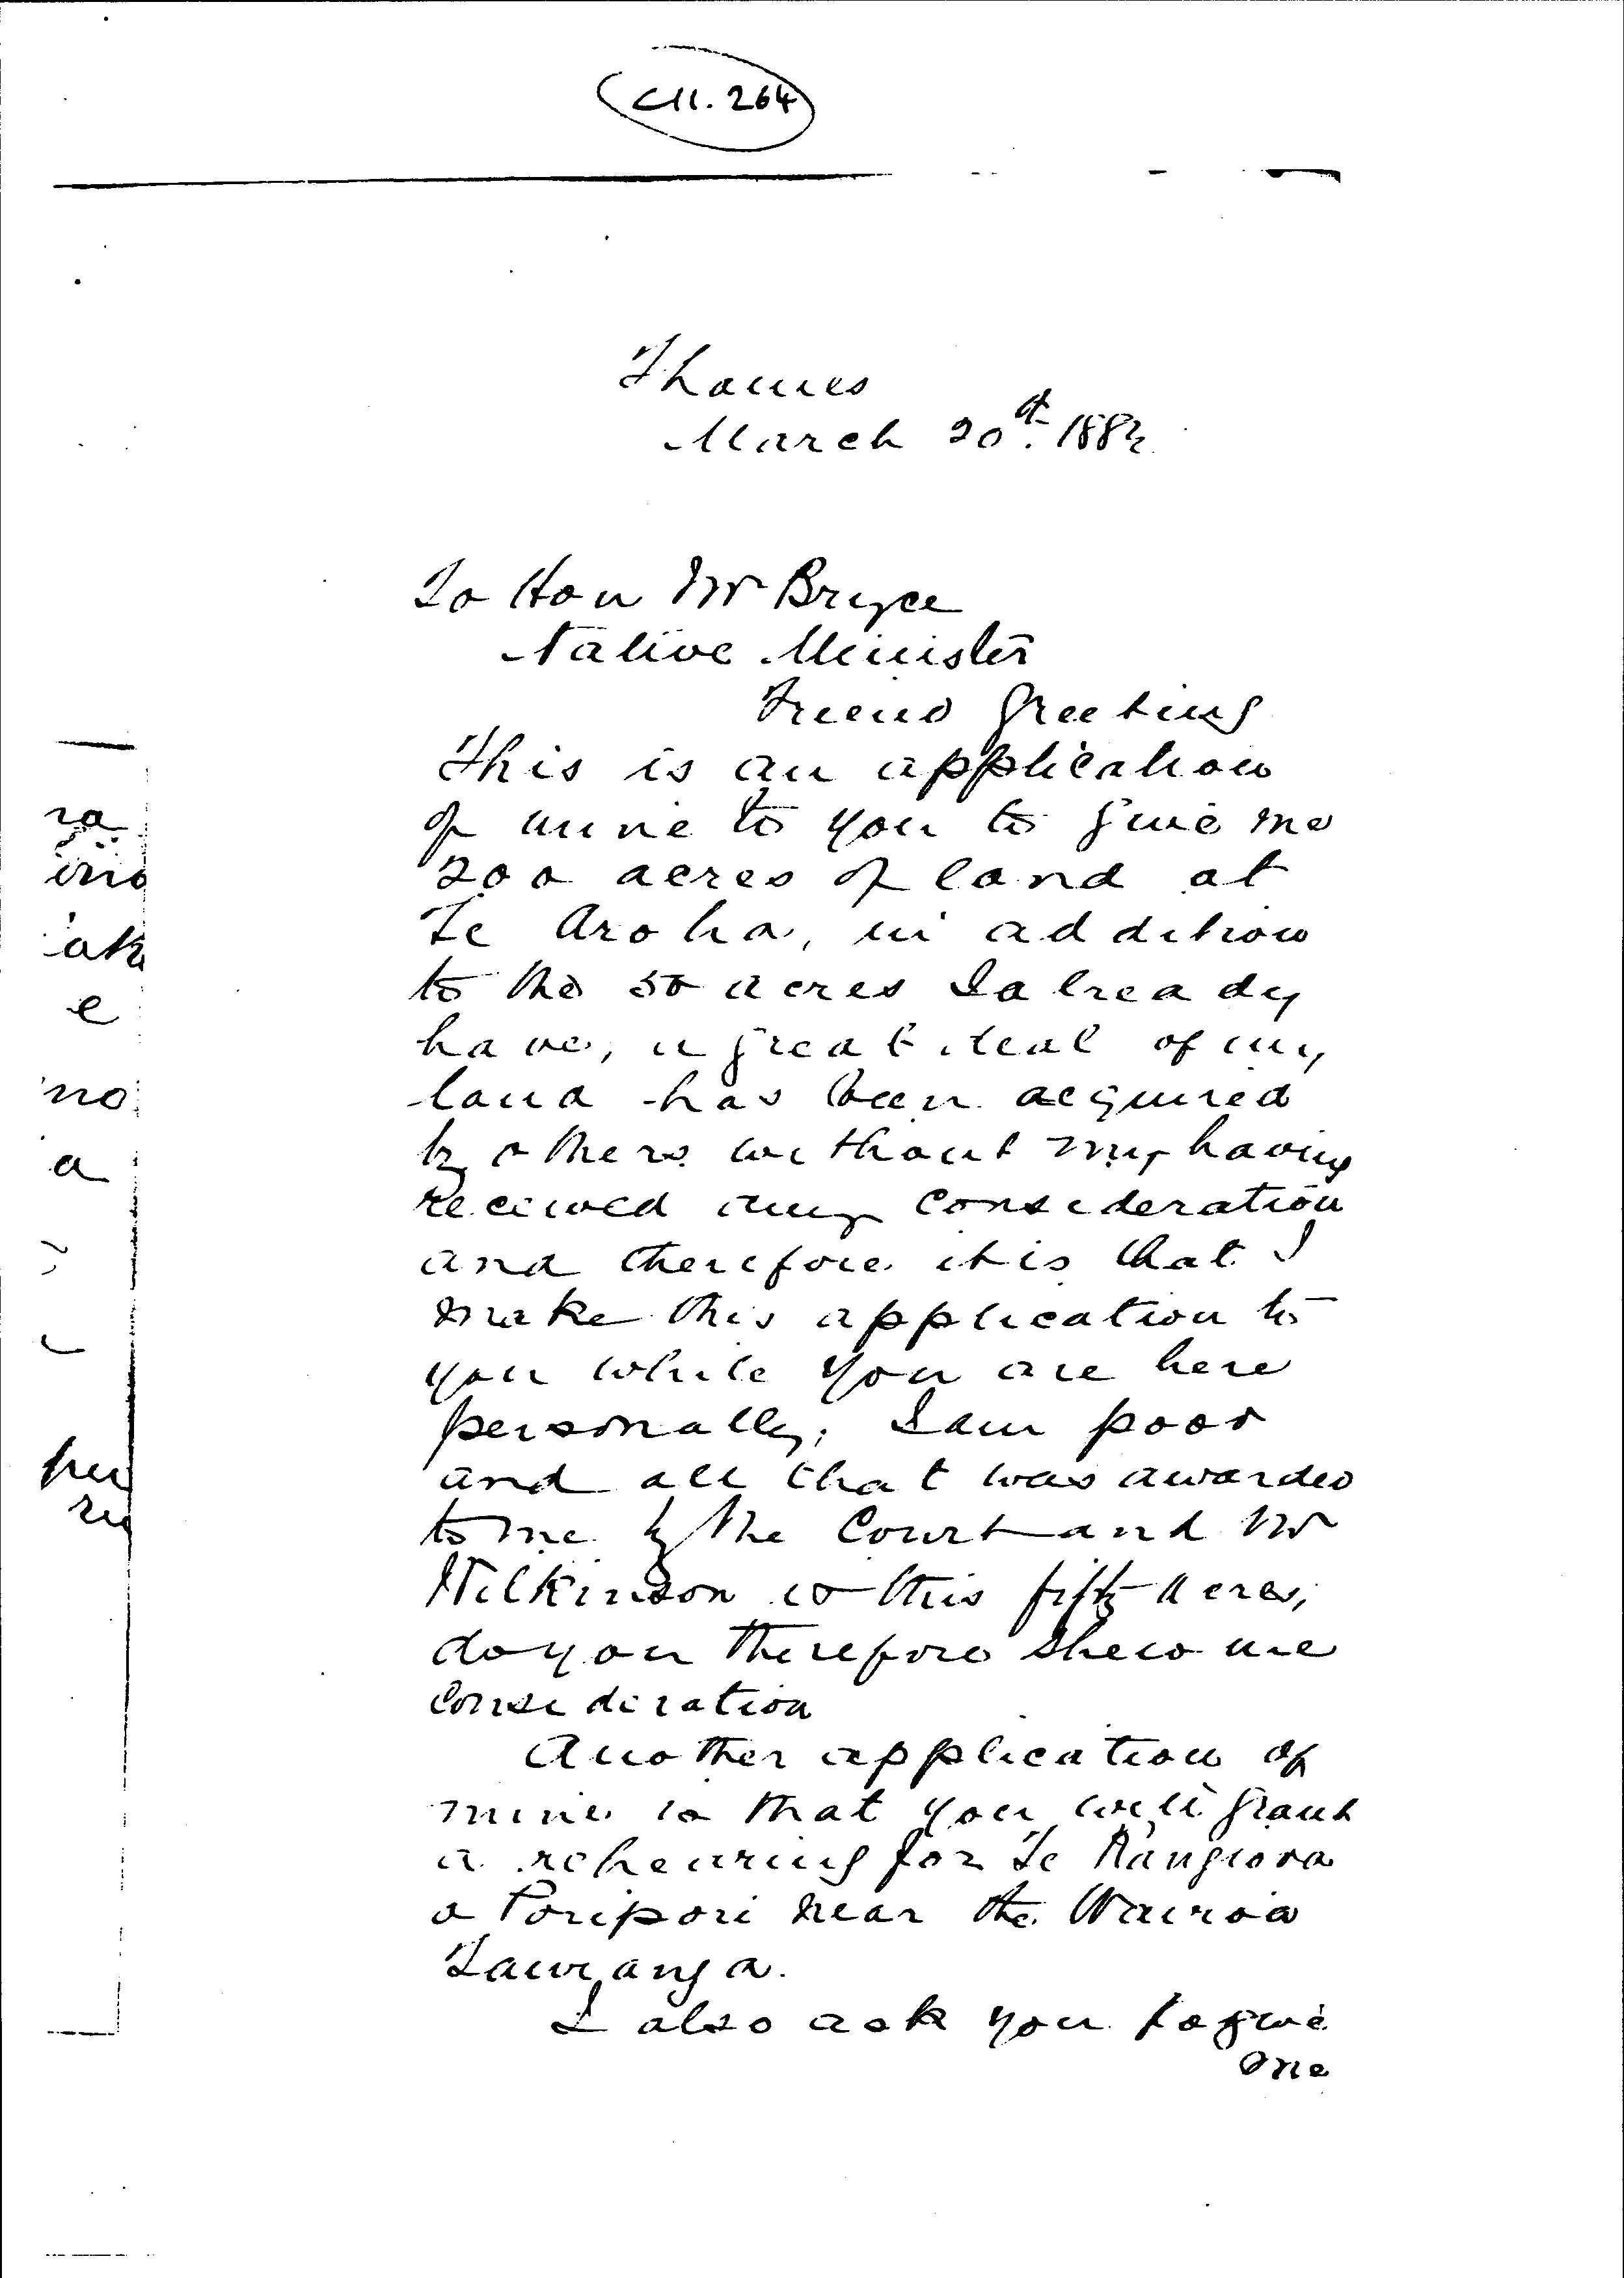 C11. 264
Thames
March 20th. 188
To Hon Mr Bryce
Native Minister
Friend Greeting
This is an application
of mine to you to give me
200 acres of land at
Te Aroha, in addition
to the 50 acres I already
have, a great deal of my
land has been acquired
by others without my having
received any consideration
and therefore it is that I
make this application to
you while you are here
personally; I am poor
and all that was awarded
to me by the Court and Mr
Wilkinson is this fifty acres,
do you therefore shew me
consideration
Another application of
mine is that you will grant
a rehearing for Te Rangiora
o Poripori near the Wairoa
Tauranga.
I also ask you to give
me
ra
ino
ak
e
no
a